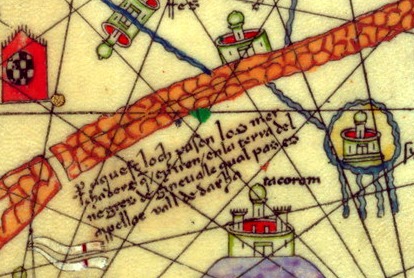 P aquest loch pasen los mer
chaders q entren en la terra del
negres de gineua lo qual pas es
appellat vall de darha
tacorom